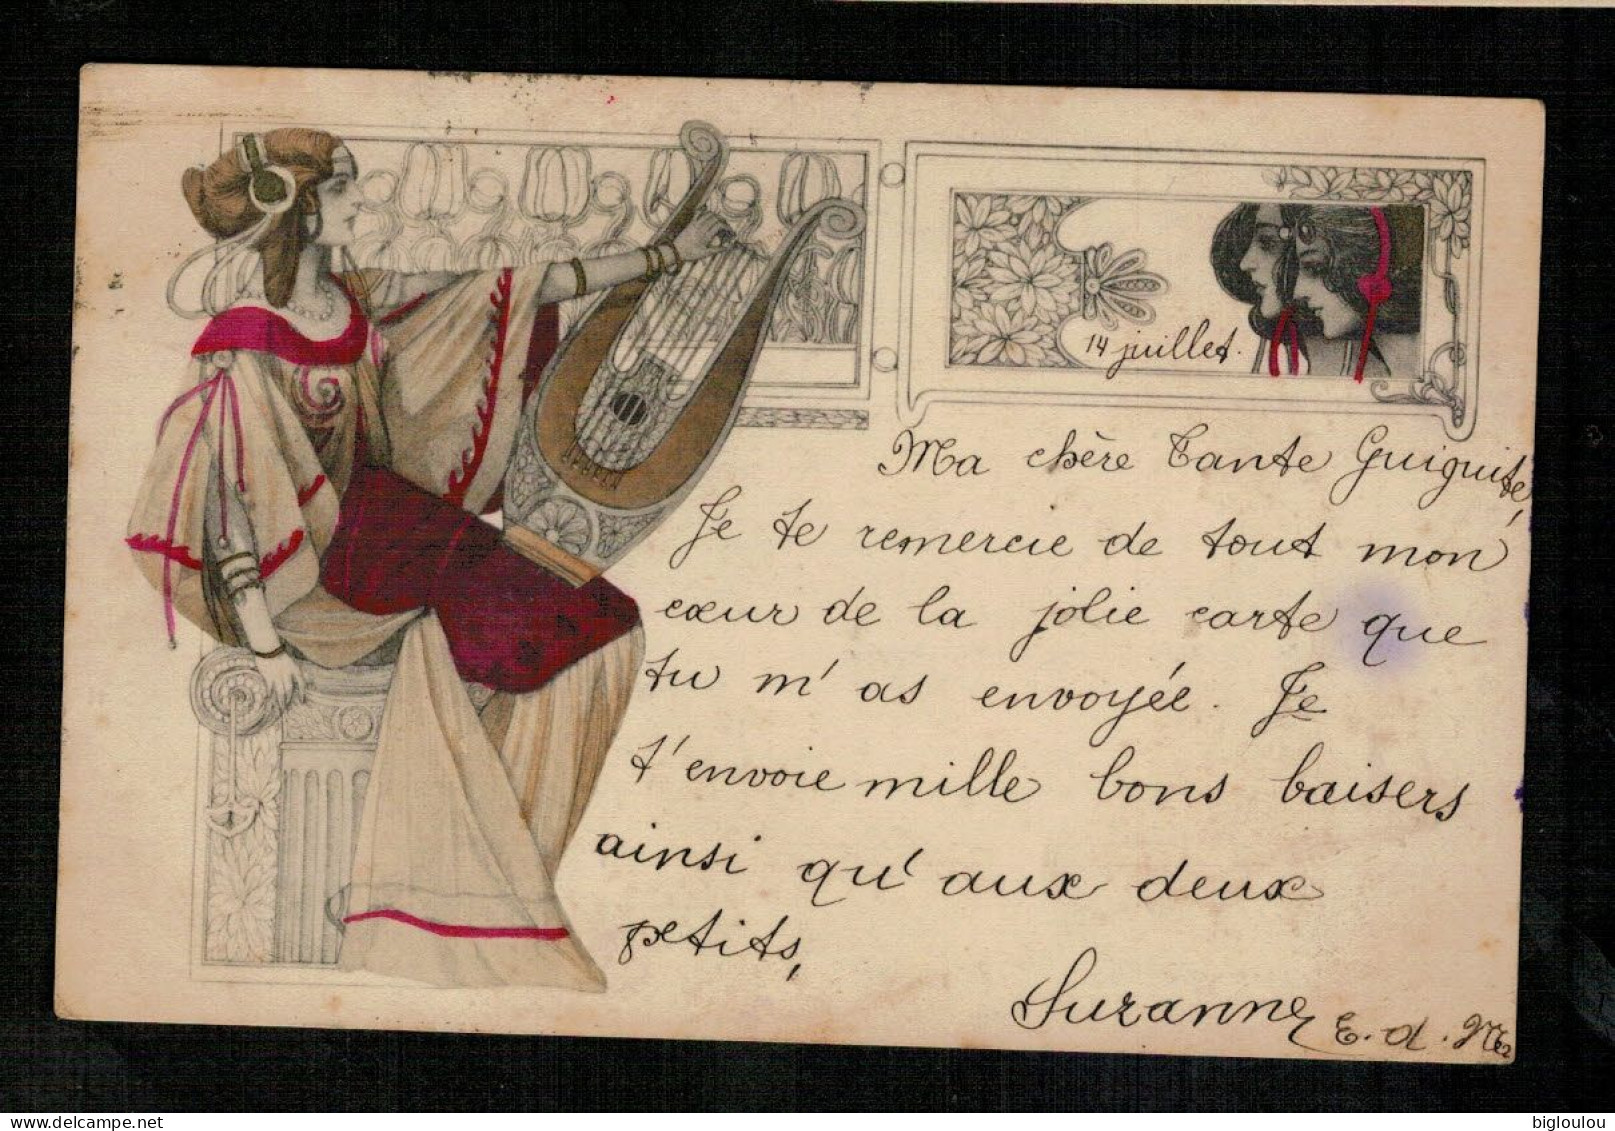 14 juillet.
Ma chère Tante Guiguite,
Je te remercie de tout mon
cœur de la jolie carte que
tu m'as envoyée. Je
t'envoie mille bons baisers
ainsi qu'aux deux
petits,
Suzanne
E. d.
delcampe.net
bigloulou